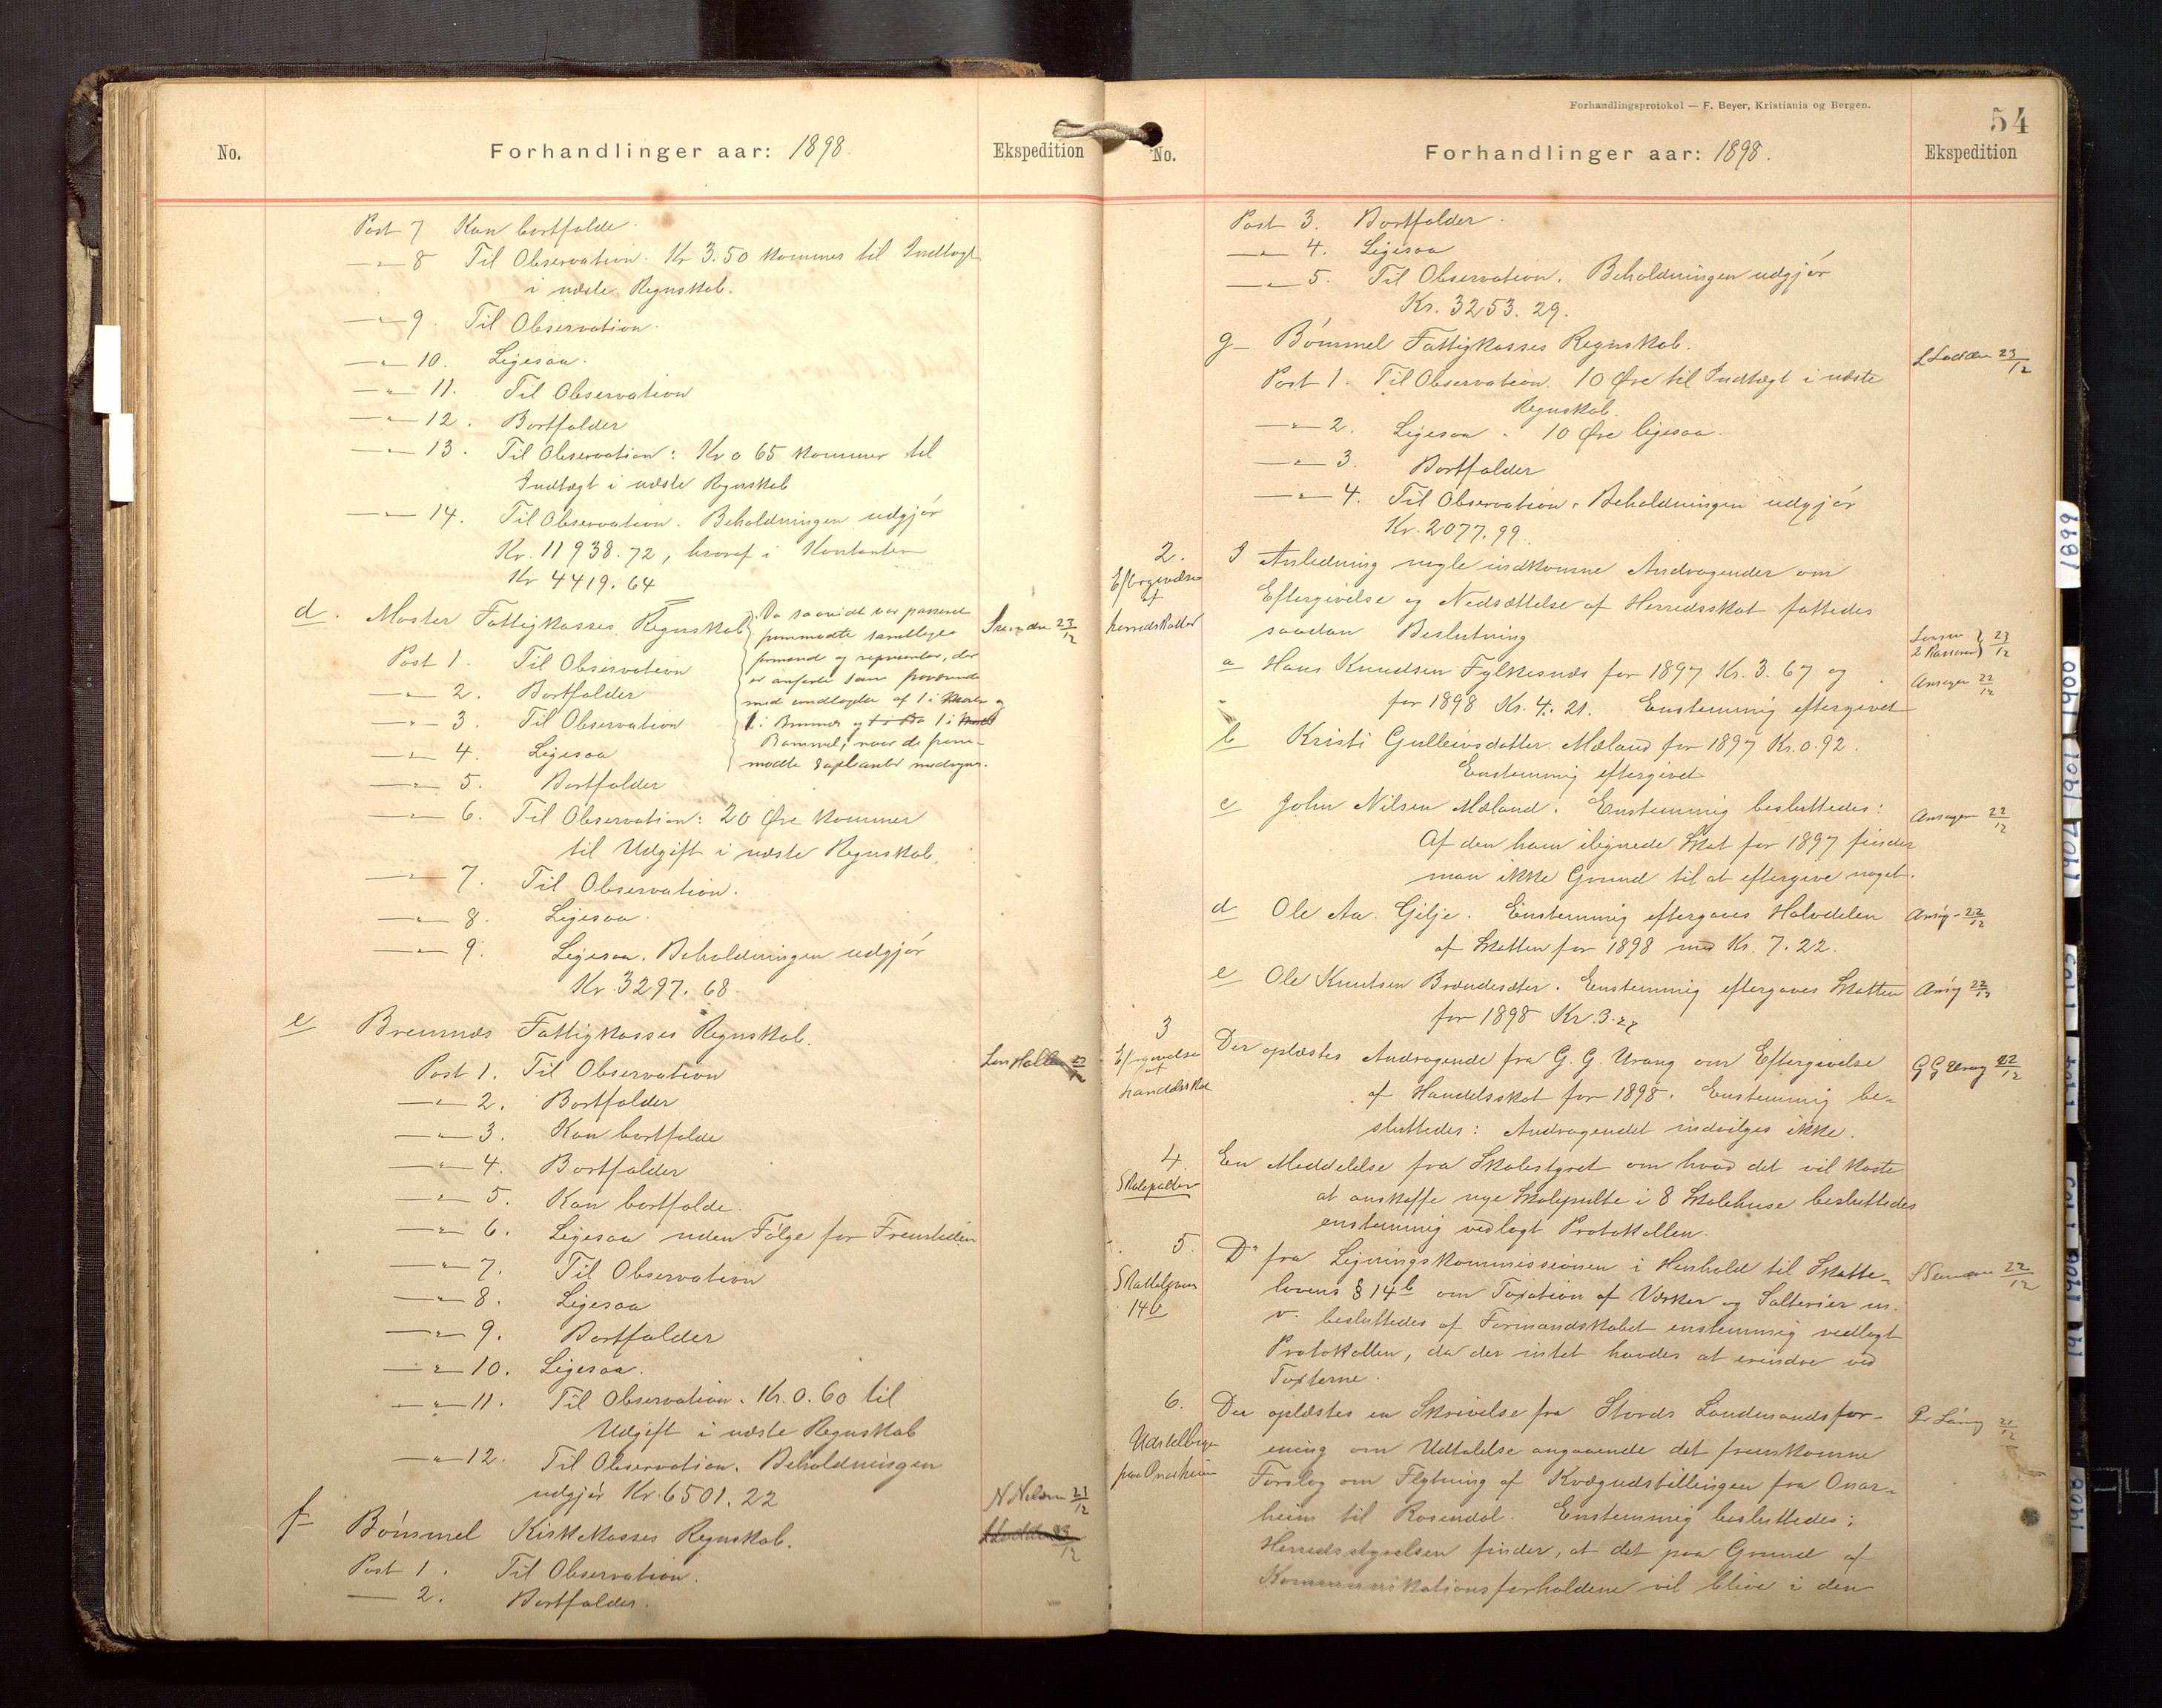 No.
Forhandlinger aar: 1898.
Ekspedition
Post 7 Kan bortfalde.
—"— 8 Til Observation. Kr 3.50 kommer til Indtægt
i næste Regnskab.
—"— 9. Til Observation.
—"— 10. Ligesaa.
—"— 11. Til Observation
—"— 12. Bortfalder
—"— 13. Til Observation: Kr 0 65 kommer til
Indtægt i næste Regnskab
—"— 14. Til Observation. Beholdningen udgjør
Kr. 11938.72, hvoraf i Kontanter
Kr 4419.64
d. Moster Fattigkasses Regnskab
Da saavidt var passeret
fremmødte samtlige
formænd og repræsentanter, der
er anførte som fraværende
med undtagelse af 1 i Moster og
1 i Bremnes og 1 i
Bømmel, naar de frem-
mødte Supleanter medregnes.
23/12
Post 1. Til Observation
—"— 2. Bortfalder
—"— 3. Til Observation
—"— 4. Ligesaa
—"— 5. Bortfalder
—"— 6. Til Observation: 20 Øre kommer
til Udgift i næste Regnskab.
—"— 7. Til Observation.
—"— 8. Ligesaa.
—"— 9. Ligesaa. Beholdningen udgjør
Kr. 3297.68
e Bremnæs Fattigkasses Regnskab.
Post 1. Til Observation
—"— 2. Bortfalder
—"— 3. Kan bortfalde
—"— 4. Bortfalder
—"— 5. Kan bortfalde.
—"— 6. Ligesaa uden Følge for Fremtiden
—"— 7. Til Observation
—"— 8. Ligesaa
—"— 9. Bortfalder
—"— 10. Ligesaa.
—"— 11. Til Observation. Kr. 0.60 til
Udgift i næste Regnskab
—"— 12. Til Observation. Beholdningen
udgjør Kr. 6501.22
N Nilsen 23/12
f Bømmel Kirkekasses Regnskab.
Post 1. Til Observation.
— 2. Bortfalder.
Forhandlingsprotokol — F. Beyer, Kristiania og Bergen.
54
No.
Forhandlinger aar: 1898.
Ekspedition
Post 3. Bortfalder.
—"— 4. Ligesaa
—"— 5. Til Observation. Beholdningen udgjør
Kr. 3253.29.
g Bømmel Fattigkasses Regnskab.
23/12
Post 1. Til Observation. 10 Øre til Indtægt i næste
Regnskab.
—"— 2. Ligesaa. 10 Øre ligesaa.
—"— 3. Bortfalder
—"— 4. Til Observation. Beholdningen udgjør
Kr. 2077.99.
2.
Eftergivelse
af
herredskatter
I Anledning nogle indkomne Andragender om
Eftergivelse og Nedsættelse af Herredsskat fattedes
saadan Beslutning
23/12
a Hans Knudsen Fylkesnæs for 1897 Kr. 3.67 og
for 1898 Kr. 4.21. Enstemmig eftergivet
Ansøger 22/12
b Kristi Gulleivsdatter Mæland for 1897 Kr. 0.92.
Enstemmig eftergivet
c John Nilsen Mæland. Enstemmig besluttedes:
Af den ham ilignede Skat for 1897 finder
man ikke Grund til at eftergive noget.
Ansøger 22/12
d Ole Aa. Gilje. Enstemmig eftergaves Halvdelen
af Skatten for 1898 med Kr. 7.22.
Ansøg. 22/12
e Ole Knutsen Brændesæter. Enstemmig eftergaves Skatten
for 1898 Kr. 3.27
Ansøg 22/12
3
Eftergivelse
af
handelsskat
Der oplæstes Andragende fra G. G. Urang om Eftergivelse
af Handelsskat for 1898. Enstemmig be-
sluttedes: Andragendet indvilges ikke.
G G Urang 22/12
4.
Skolepulter
En Meddelelse fra Skolestyret om hvad det vil koste
at anskaffe nye Skolepulte i 8 Skolehuse besluttedes
enstemmig vedlagt Protokollen.
5.
Skattelovens
14b
Do fra Ligningskommissionen i Henhold til Skatte-
lovens § 14b om Taxation af Værker og Salterier m.
v. besluttedes af Formandskabet enstemmig vedlagt
Protokollen, da der intet havdes at erindre ved
Taxterne.
22/12
6.
Udstilling
paa Onarheim
Der oplæstes en Skrivelse fra Stords Landmandsfor-
ening om Udtalelse angaaende det fremkomne
Forslag om Flytning af Kvægudstillingen fra Onar-
heim til Rosendal. Enstemmig besluttedes:
Herredsstyrelsen finder, at det paa Grund af
Kommunikationsforholdene vil blive i den
1899
1900
1901
1902
1908